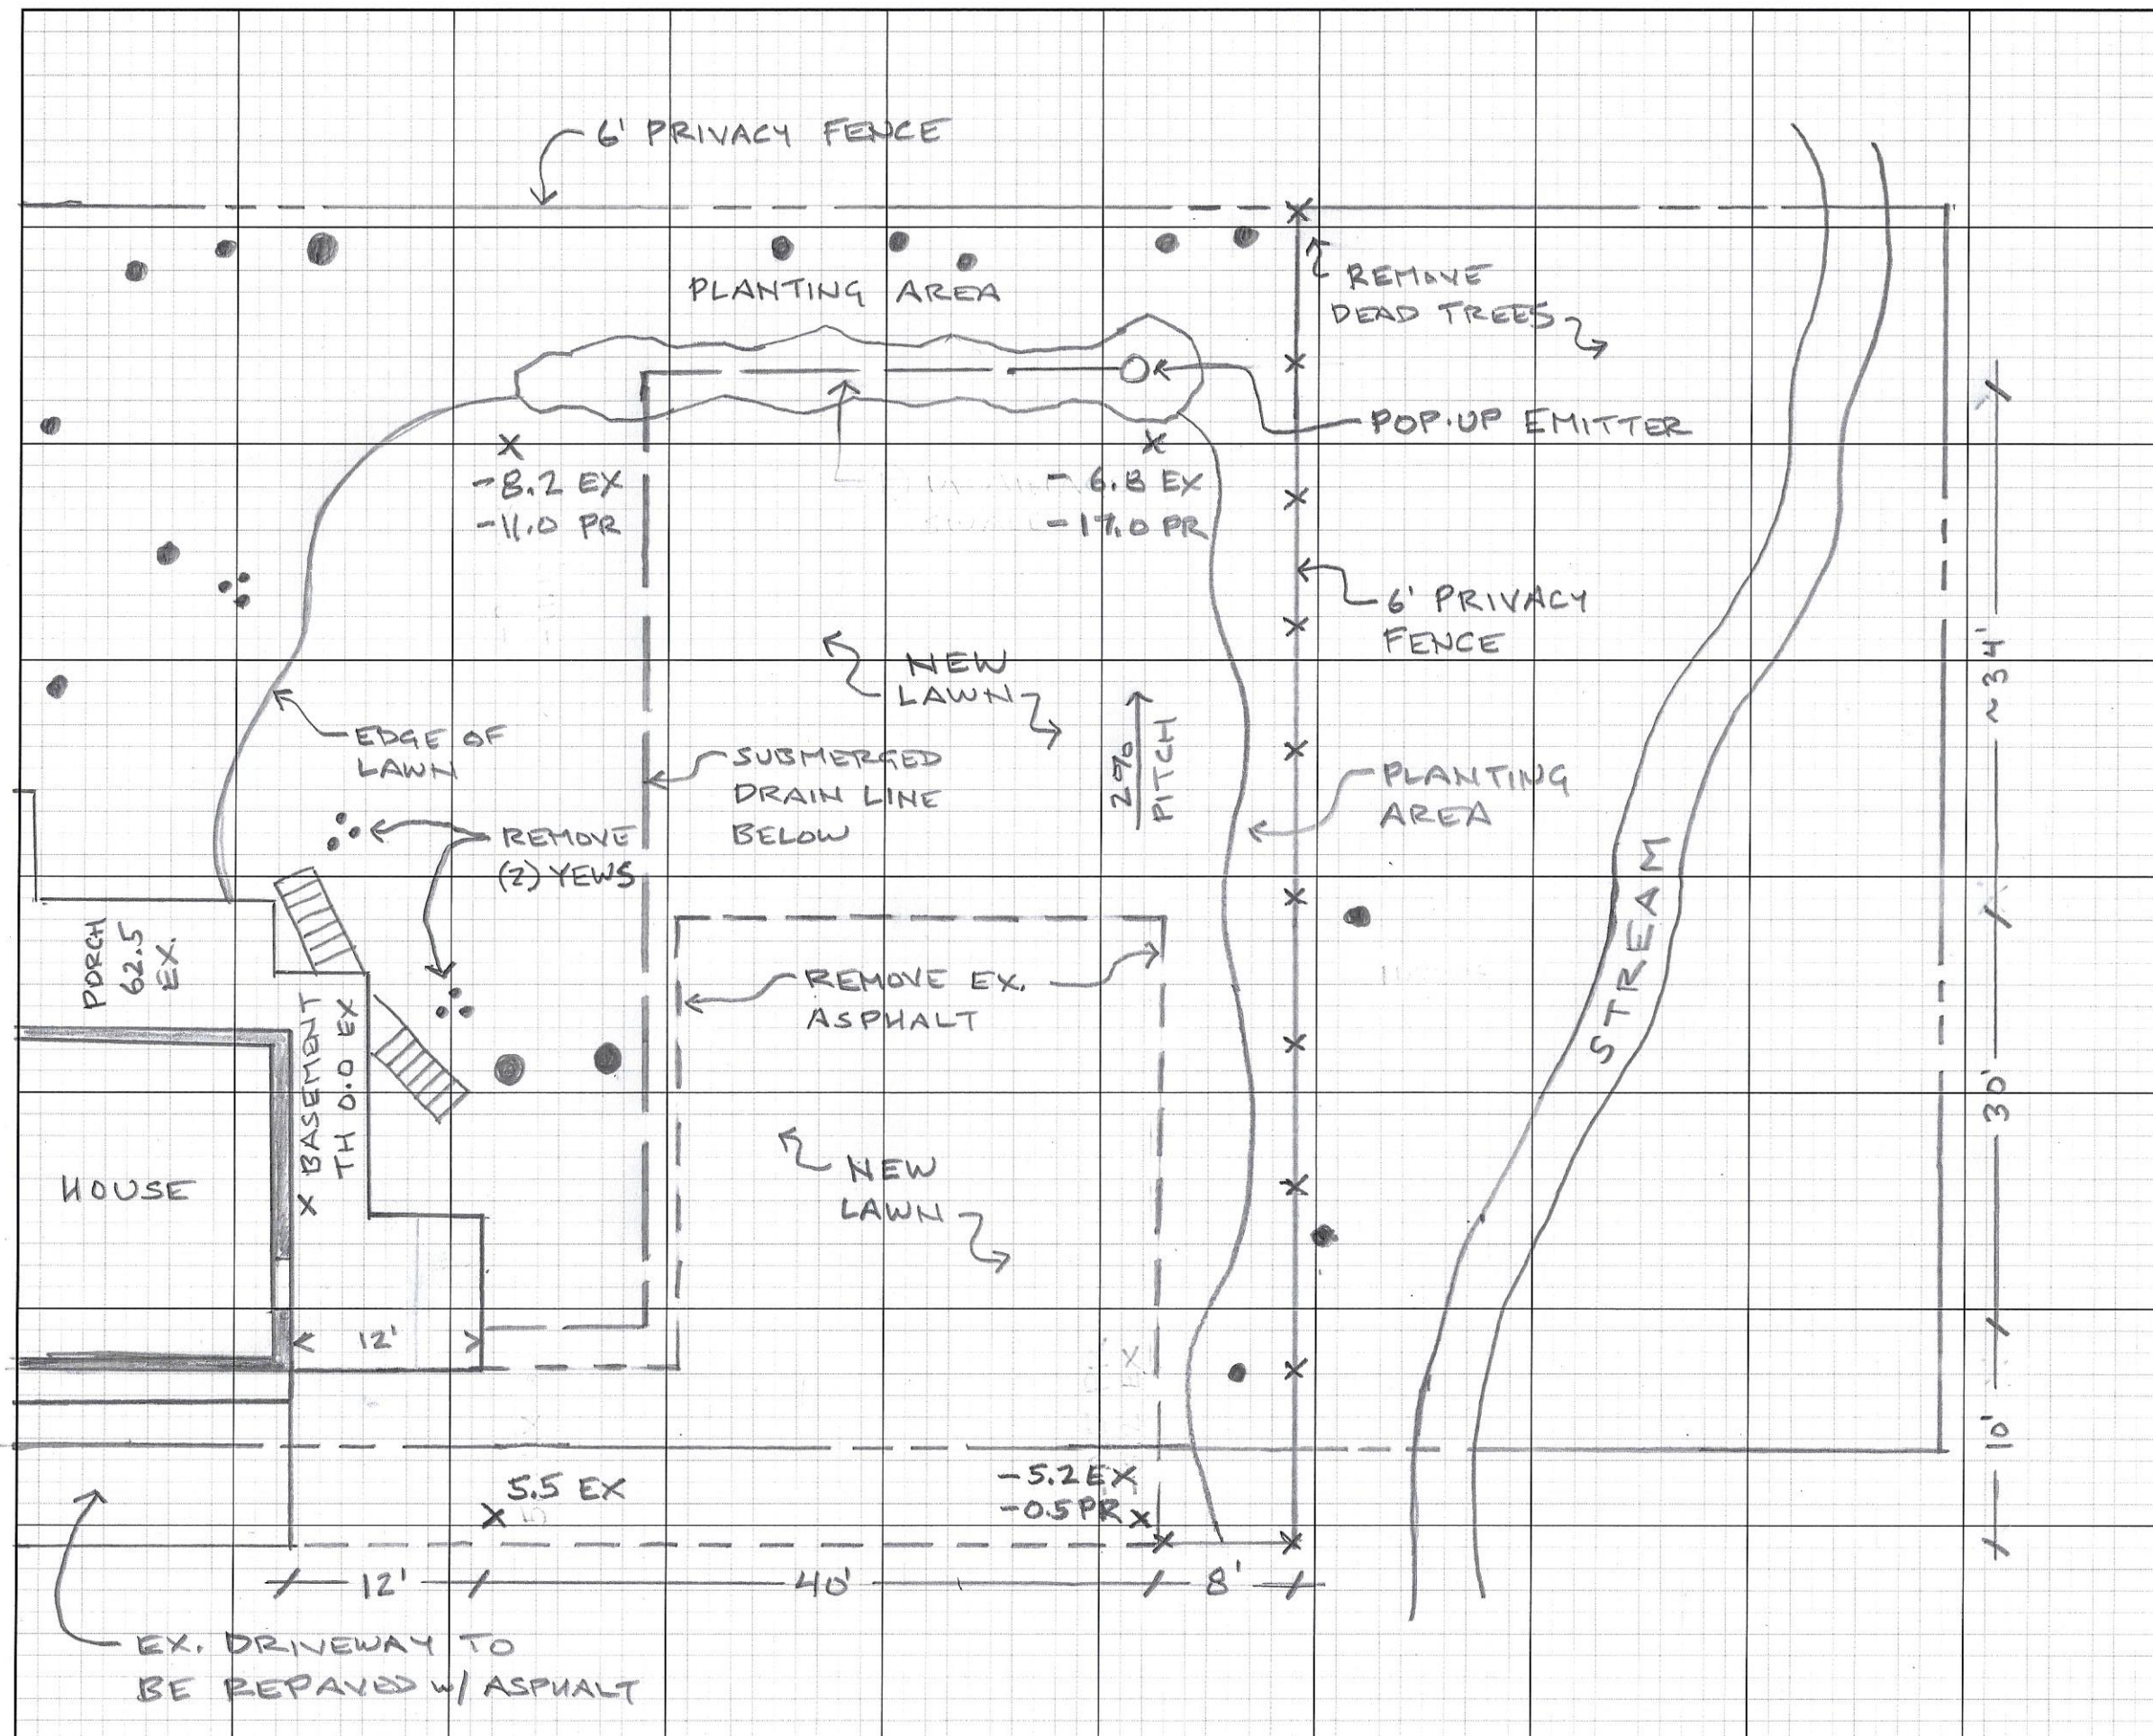 6' PRIVACY FENCE
PLANTING AREA
REMOVE
DEAD TREES
POP-UP EMITTER
-8.2 EX
-11.0 PR
-6.8 EX
-17.0 PR
6' PRIVACY
FENCE
NEW
LAWN
2%
PITCH
EDGE OF
LAWN
SUBMERGED
DRAIN LINE
BELOW
PLANTING
AREA
REMOVE
(2) YEWS
PORCH
62.5
EX.
BASEMENT
TH 0.0 EX
REMOVE EX.
ASPHALT
STREAM
~34'
30'
10'
HOUSE
NEW
LAWN
12'
5.5 EX
-5.2 EX
-0.5 PR
12'
40'
8'
EX. DRIVEWAY TO
BE REPAVED w/ ASPHALT